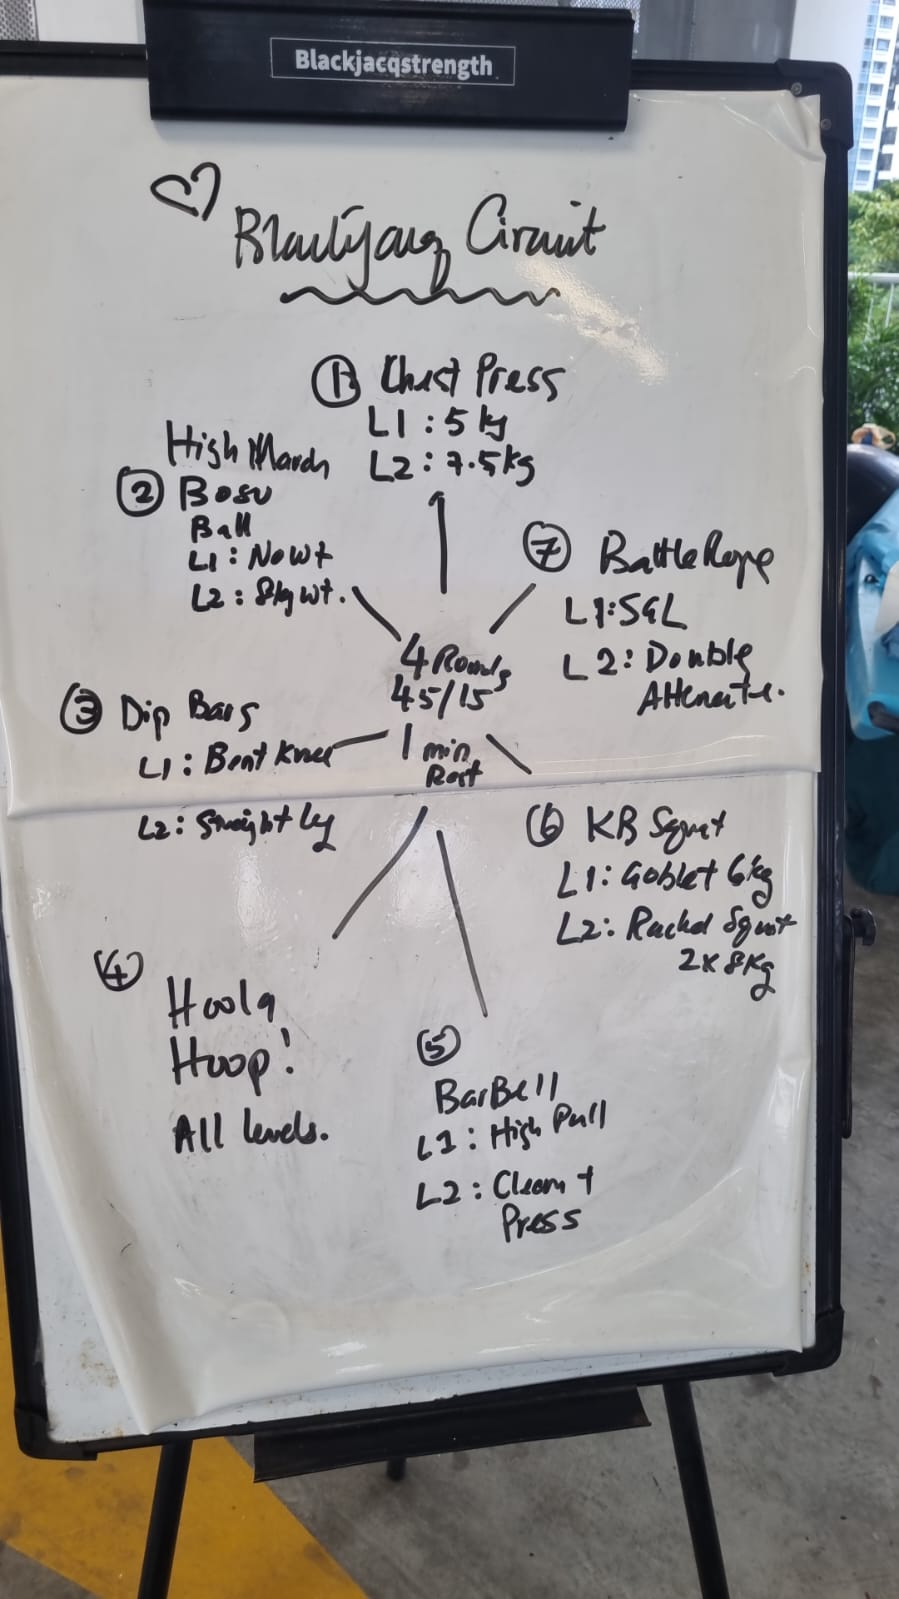 Blackjacqstrength
Circuit
① Chest Press
L1 : 5 kg
L2 : 7.5kg
High March
② Bosu
Ball
L1 : No wt
L2 : 8kg wt.
⑦ Battle Rope
L1: SGL
L2: Double
Alternate.
4 Rounds
45/15
1 min
Rest
③ Dip Bars
L1 : Bent Knee
L2: Straight Leg
④
Hoola
Hoop!
All levels.
⑤
BarBell
L1 : High Pull
L2 : Clean +
Press
⑥ KB Squat
L1: Goblet 6kg
L2: Racked Squat
2x 8kg